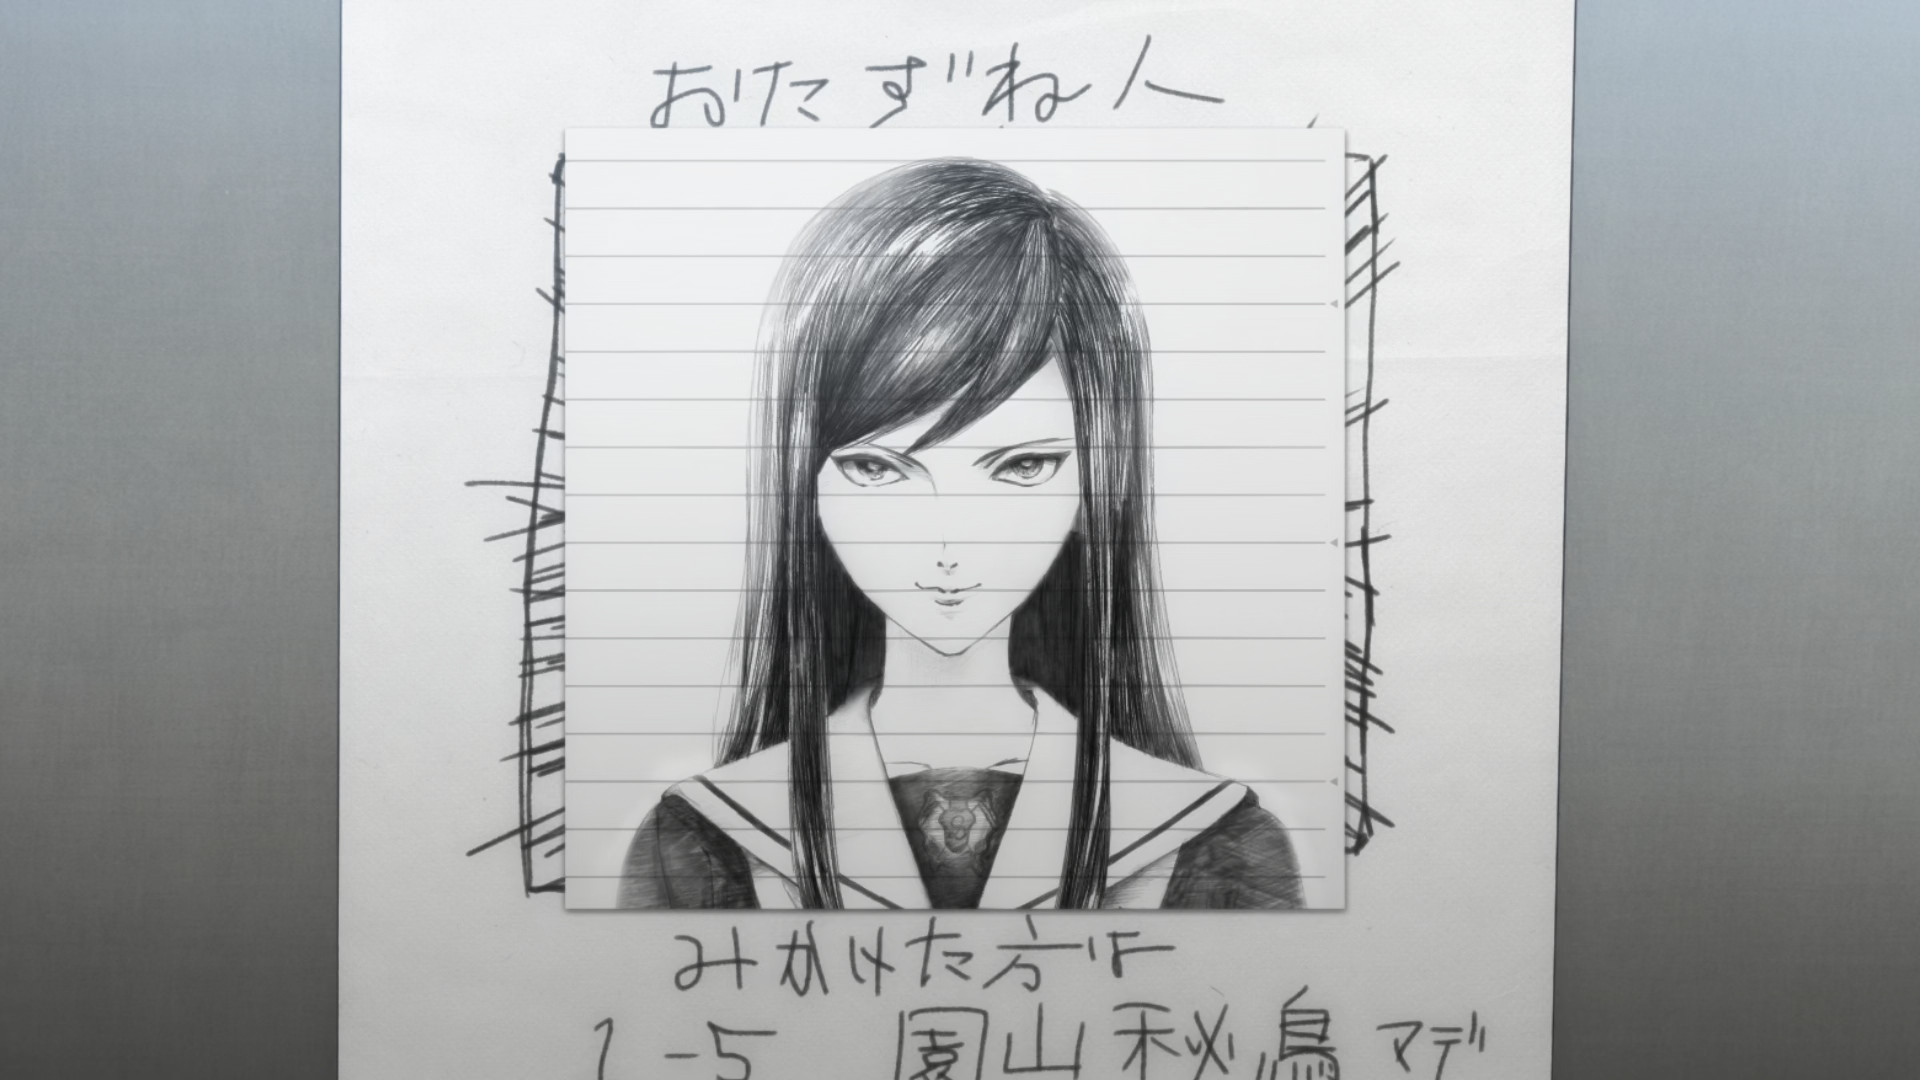 おたずね人
みかけた方は
1-5 園山秘鳥マデ